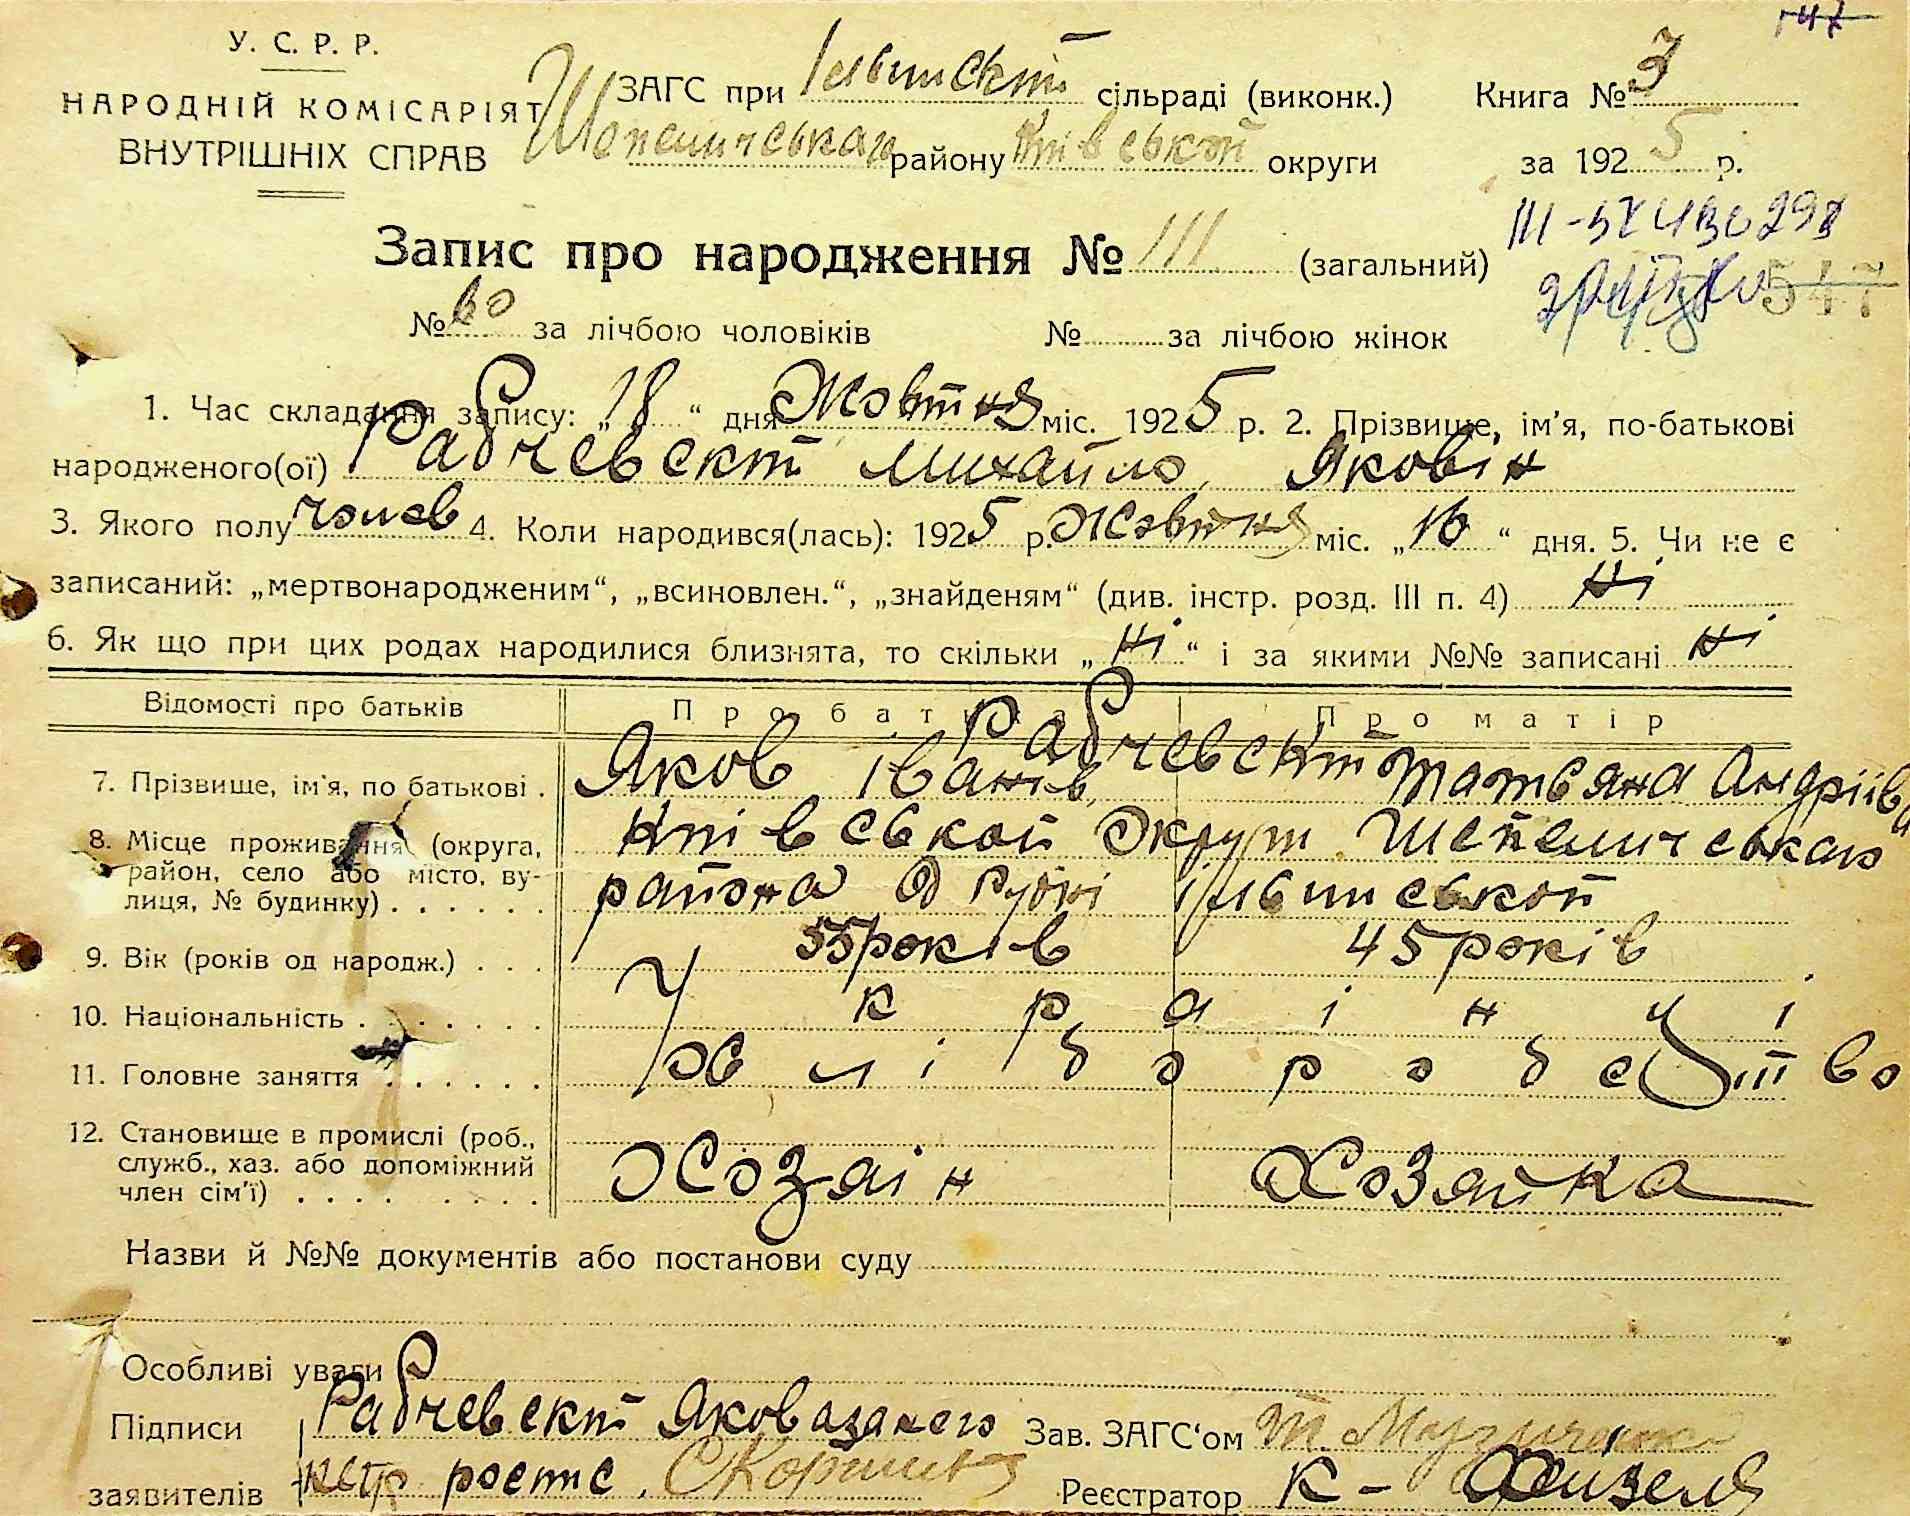 У. С. Р. Р.
НАРОДНІЙ КОМІСАРІЯТ
ВНУТРІШНІХ СПРАВ
ЗАГС при сільраді (виконк.)
Шепелическаго району Київської округи
Книга № 3
за 1925 р.
Запис про народження № 111 (загальний)
547
№ 60 за лічбою чоловіків № за лічбою жінок
1. Час складання запису: „18“ дня Жовтня міс. 1925 р. 2. Прізвище, ім'я, по-батькові
народженого(ої) Рабчевский Михайло Яковів
3. Якого полу чолов 4. Коли народився(лась): 1925 р. Жовтня міс. „16“ дня. 5. Чи не є
записаний: „мертвонародженим“, „всиновлен.“, „знайденям“ (див. інстр. розд. III п. 4) Ні
6. Як що при цих родах народилися близнята, то скільки „Ні“ і за якими №№ записані Ні
Відомості про батьків Про батька Про матір
7. Прізвище, ім'я, по батькові . Яков Іванів Рабчевский Татьяна Андріівна
8. Місце проживання (округа, Київськой Округи Шепеличськаго
район, село або місто, ву-
лиця, № будинку) . . . . . . района
9. Вік (років од народж.) . . . 55 років 45 років
10. Національність . . . . . . . Українці
11. Головне заняття . . . . . . Хліборобство
12. Становище в промислі (роб.,
служб., хаз. або допоміжний
член сім'ї) . . . . . . . . . Хозаін Хозяйка
Назви й №№ документів або постанови суду
Особливі уваги
Підписи Рабчевский Яков Зав. ЗАГС'ом
заявителів Реєстратор К-